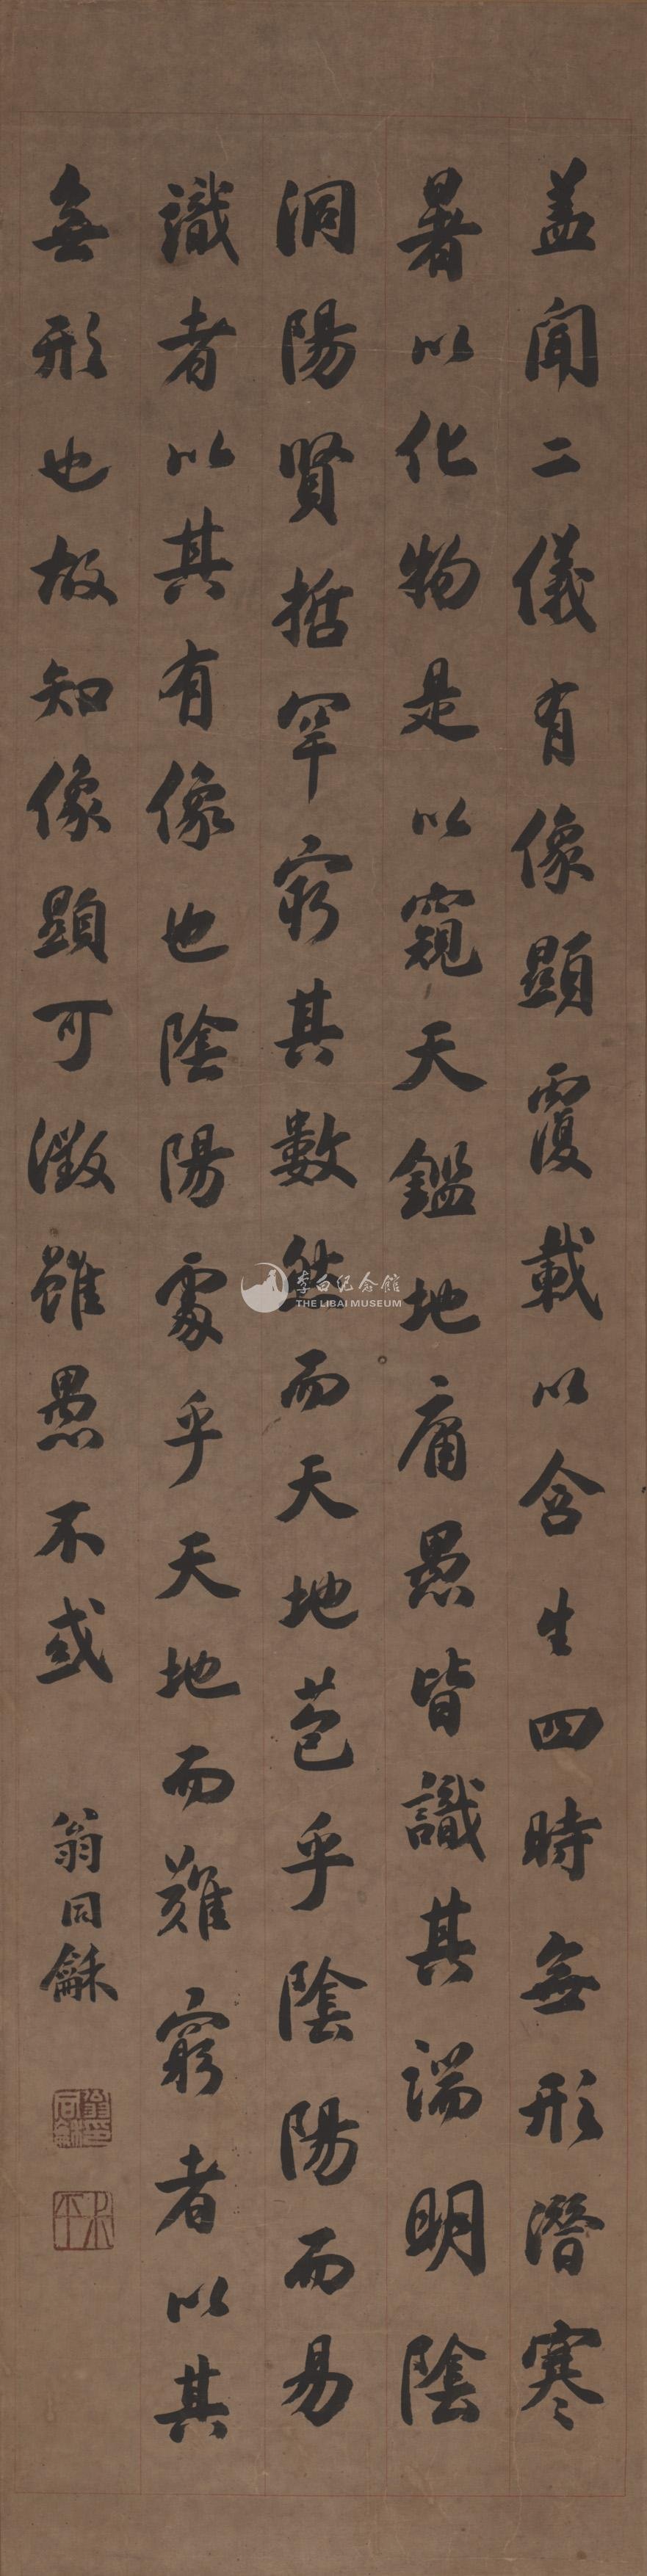 盖闻二儀有像顯覆載以含生四時無形潛寒
暑以化物是以窺天鑑地庸愚皆識其端明陰
洞陽賢哲罕窮其數然而天地苞乎陰陽而易
識者以其有像也陰陽處乎天地而難窮者以其
無形也故知像顯可徵雖愚不惑
翁同龢
李白纪念馆
THE LIBAI MUSEUM